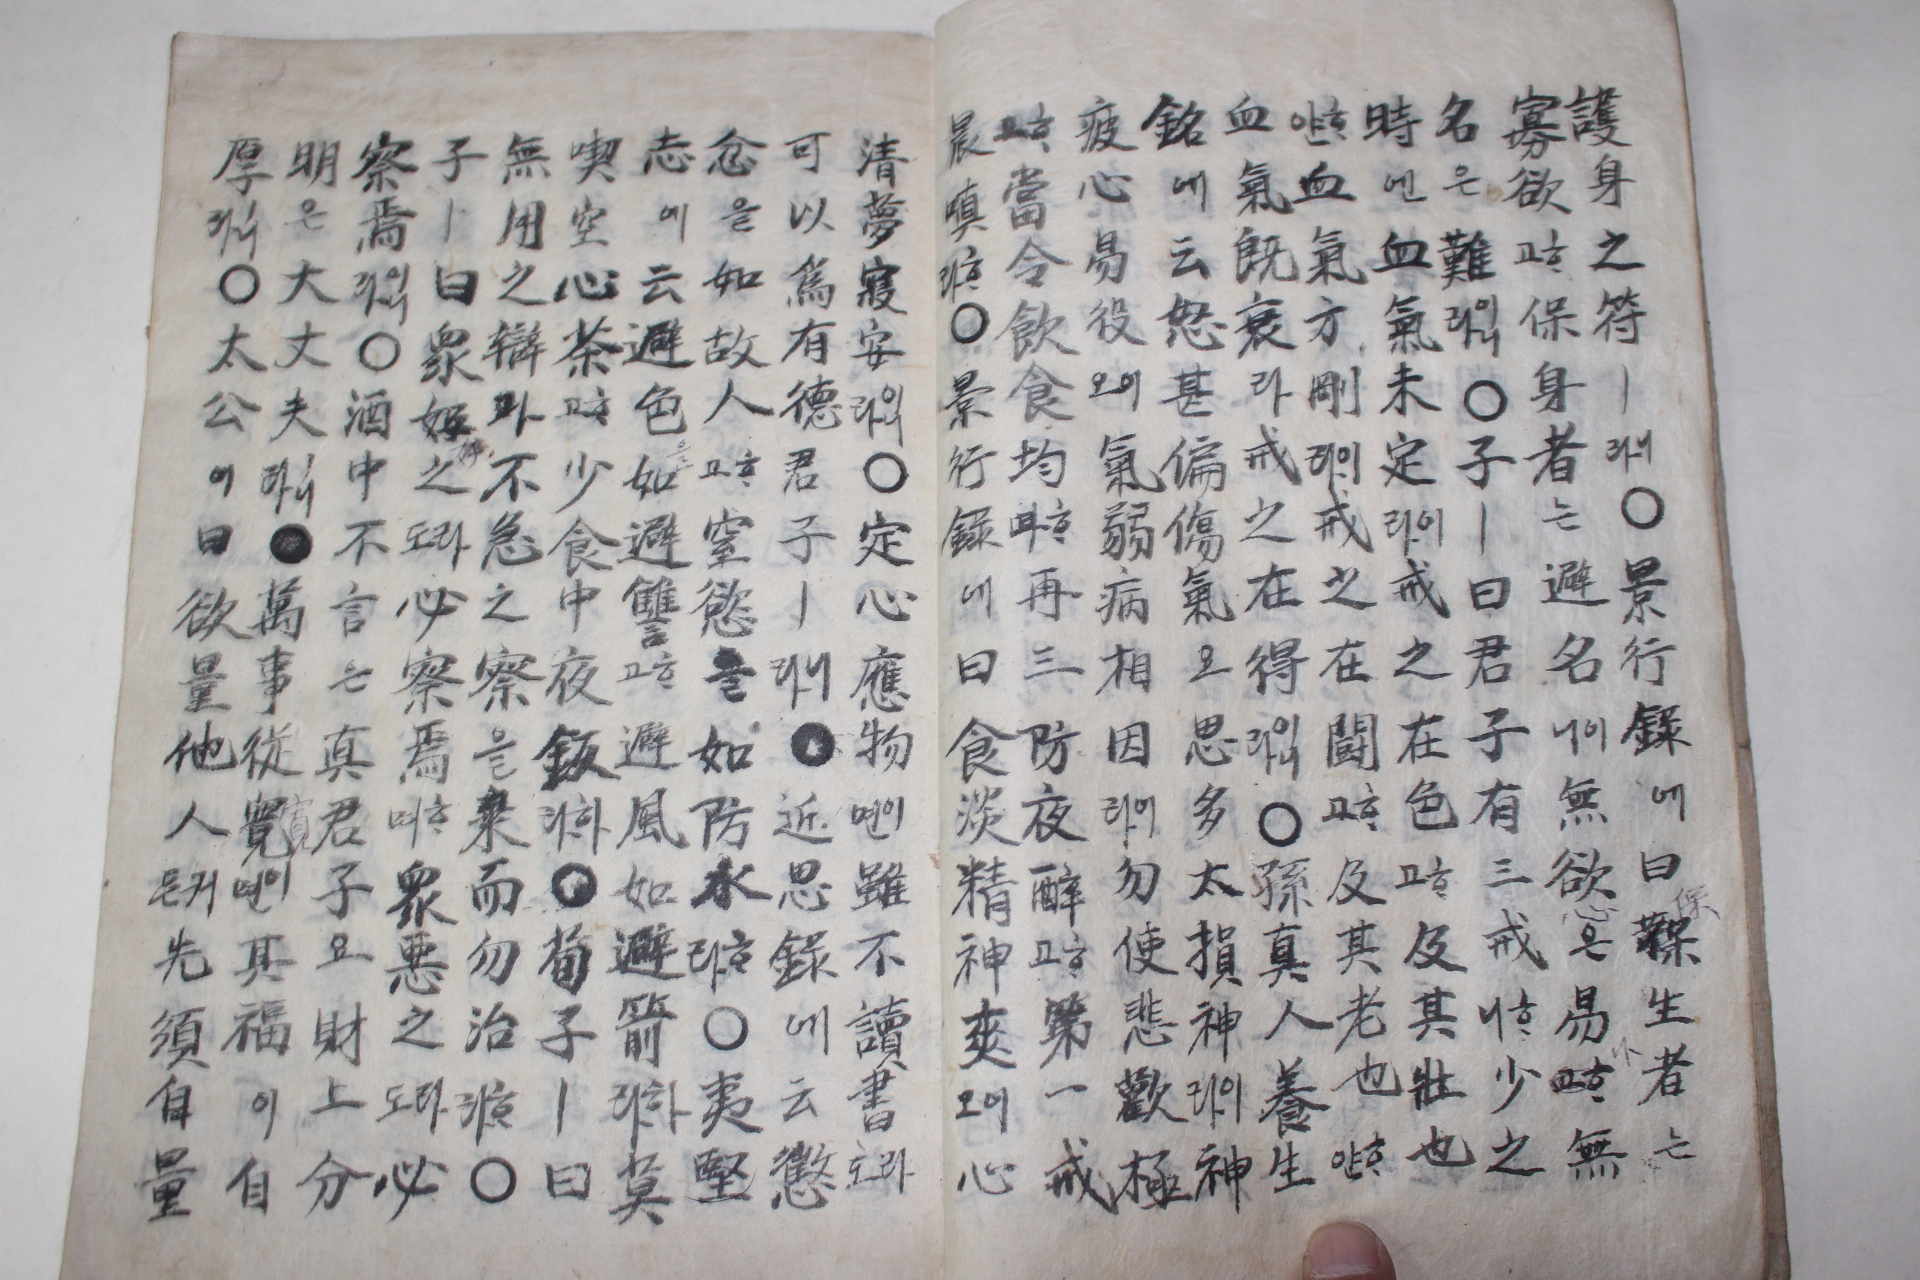 護身之符ㅣ라니○景行錄에曰保生者는
寡欲고保身者는避名니이無欲은易고無
名은難라이니○子ㅣ曰君子有三戒니少之
時엔血氣未定라이戒之在色고及其壯也
얀血氣方剛라이戒之在鬪고及其老也얀
血氣既衰라戒之在得라이니○孫真人養生
銘에云怒甚偏傷氣요思多太損神라이神
疲心易役오이氣弱病相因라이勿使悲歡極
고當令飲食均며再三防夜醉고第一戒
晨嗔라○景行錄에曰食淡精神爽오이心
清夢寐安라이니○定心應物면이雖不讀書도라
可以為有德君子ㅣ라니●近思錄에云懲
忿을如故人고窒慾을如防水라○夷堅
志에云避色如避讐고避風如避箭라하莫
喫空心茶고少食中夜飯라하●荀子ㅣ曰
無用之辯과不急之察을棄而勿治라○
子ㅣ曰衆好之도라必察焉며衆惡之도라必
察焉라이니○酒中不言은真君子요財上分
明은大丈夫라니●萬事從寬면이其福이自
厚라니○太公이曰欲量他人은커先須自量